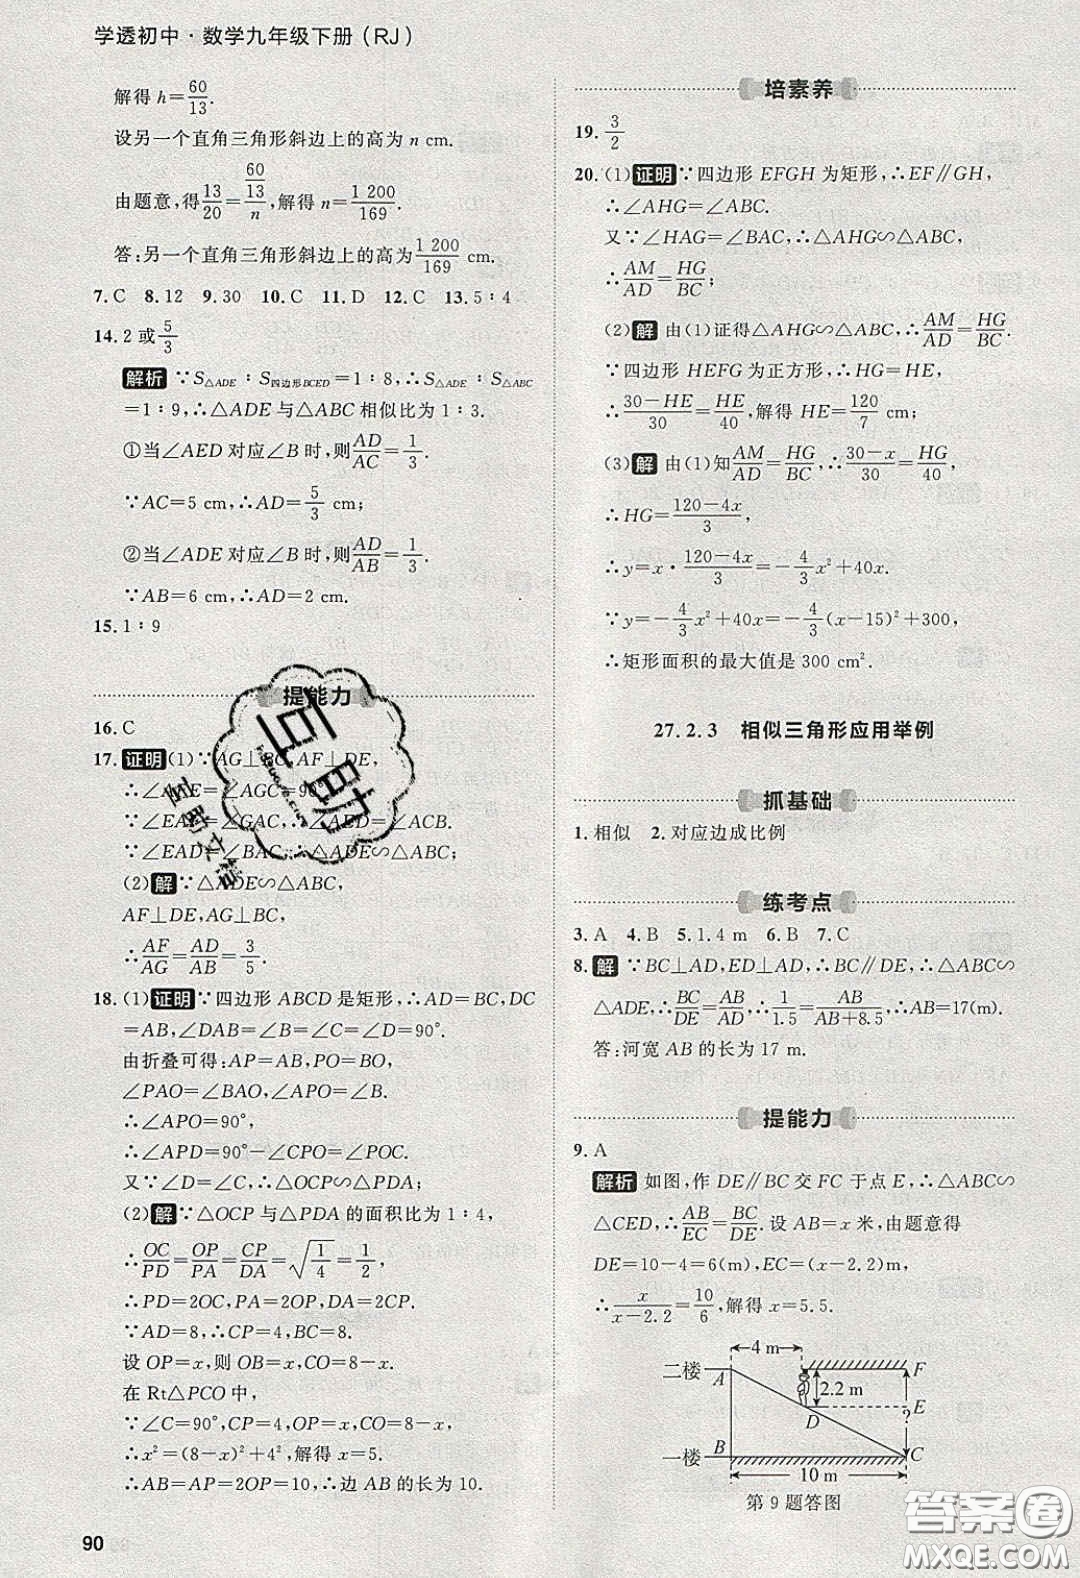 学透初中·数学九年级下册(RJ)
解得 h=60/13.
设另一个直角三角形斜边上的高为 n cm.
由题意,得13/20=(60/13)/n,解得 n=1 200/169.
答:另一个直角三角形斜边上的高为1 200/169 cm.
7. C 8. 12 9. 30 10. C 11. D 12. C 13. 5∶4
14. 2 或5/3
解析 ∵S△ADE∶S四边形BCED=1∶8,∴S△ADE∶S△ABC
=1∶9,∴△ADE 与△ABC 相似比为 1∶3.
①当∠AED 对应∠B 时,则AD/AC=1/3.
∵AC=5 cm,∴AD=5/3 cm;
②当∠ADE 对应∠B 时,则AD/AB=1/3.
∵AB=6 cm,∴AD=2 cm.
15. 1∶9
提能力
16. C
17. 证明 (1)∵AG⊥BC,AF⊥DE,
∴∠AFE=∠AGC=90°.
∴∠EAF=∠GAC,∴∠AED=∠ACB.
∵∠EAD=∠BAC,∴△ADE∽△ABC;
(2)解 ∵△ADE∽△ABC,
AF⊥DE,AG⊥BC,
∴AF/AG=AD/AB=3/5.
18. (1)证明 ∵四边形 ABCD 是矩形,∴AD=BC,DC
=AB,∠DAB=∠B=∠C=∠D=90°.
由折叠可得:AP=AB,PO=BO,
∠PAO=∠BAO,∠APO=∠B.
∴∠APO=90°.
∴∠APD=90°-∠CPO=∠POC.
又∵∠D=∠C,∴△OCP∽△PDA;
(2)解 ∵△OCP 与△PDA 的面积比为 1∶4,
∴OC/PD=OP/PA=CP/DA=√(1/4)=1/2.
∴PD=2OC,PA=2OP,DA=2CP.
∵AD=8,∴CP=4,BC=8.
设 OP=x,则 OB=x,CO=8-x.
在 Rt△PCO 中,
∵∠C=90°,CP=4,OP=x,CO=8-x,
∴x²=(8-x)²+4²,解得 x=5.
∴AB=AP=2OP=10,∴边 AB 的长为 10.
90
培素养
19. 3/2
20. (1)证明 ∵四边形 EFGH 为矩形,∴EF∥GH,
∴∠AHG=∠ABC.
又∵∠HAG=∠BAC,∴△AHG∽△ABC,
∴AM/AD=HG/BC;
(2)解 由(1)证得△AHG∽△ABC,∴AM/AD=HG/BC.
∵四边形 HEFG 为正方形,∴HG=HE,
∴(30-HE)/30=HE/40,解得 HE=120/7 cm;
(3)解 由(1)知AM/AD=HG/BC,∴(30-x)/30=HG/40,
∴HG=(120-4x)/3,
∴y=x·(120-4x)/3=-4/3x²+40x.
∵y=-4/3x²+40x=-4/3(x-15)²+300,
∴矩形面积的最大值是 300 cm².
27.2.3 相似三角形应用举例
抓基础
1. 相似 2. 对应边成比例
练考点
3. A 4. B 5. 1.4 m 6. B 7. C
8. 解 ∵BC⊥AD,ED⊥AD,∴BC∥DE,∴△ABC∽
△ADE,∴BC/DE=AB/AD,∴1/1.5=AB/(AB+8.5),∴AB=17(m).
答:河宽 AB 的长为 17 m.
提能力
9. A
解析 如图,作 DE∥BC 交 FC 于点 E,∴△ABC∽
△CED,∴AB/EC=BC/DE. 设 AB=x 米,由题意得
DE=10-4=6(m),EC=(x-2.2)m,
∴x/(x-2.2)=10/6,解得 x=5.5.
4 m
二楼 A F
2.2 m
D E
?
一楼 B C
10 m
第 9 题答图
互助
互助文档
答案圈
MXQE.COM